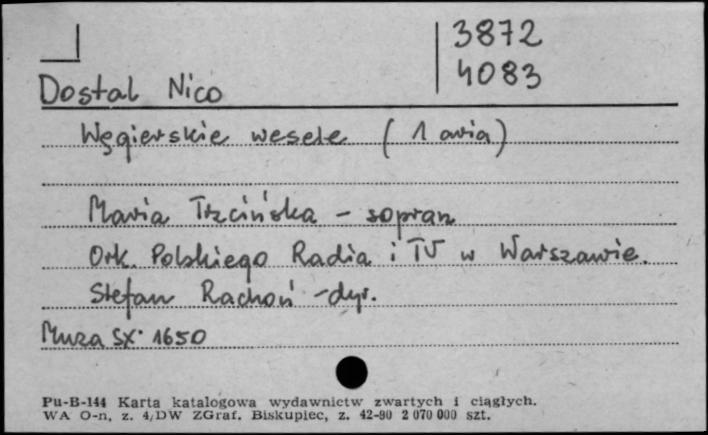 3872
4083
Dostal Nico
Węgierskie wesele (1 aria)
Maria Trzcińska - sopran
Ork. Polskiego Radia i TV w Warszawie.
Stefan Rachoń - dyr.
Muza SX. 1650
Pu-B-144 Karta katalogowa wydawnictw zwartych i ciągłych.
WA O-n, z. 4/DW ZGraf. Biskupiec, z. 42-90 2 070 000 szt.